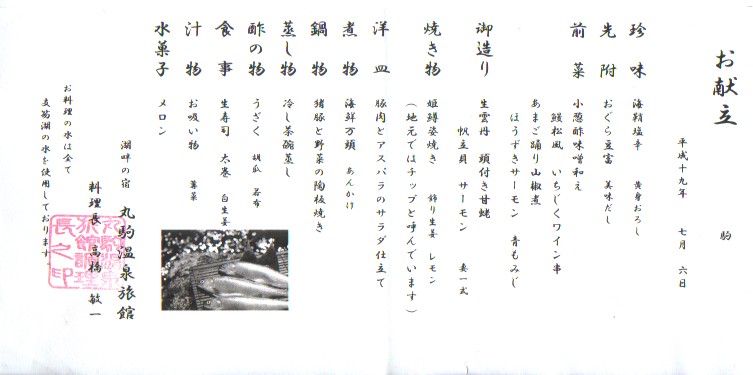 お献立
駒
平成十九年 七月 六日
珍味 海鞘塩辛 黄身おろし
先附 おぐら豆富 美味だし
前菜 小葱酢味噌和え
鰻松風 いちじくワイン事
あまご踊り山椒煮
ほうずきサーモン 青もみじ
御造り 生雲丹 頭付き甘蝦
帆立貝 サーモン 妻一式
焼き物 姫鱒姿焼き 飾り生姜 レモン
(地元ではチップと呼んでいます)
洋皿 豚肉とアスパラのサラダ仕立て
煮物 海鮮万頭 あんかけ
鍋物 猪豚と野菜の陶板焼き
蒸し物 冷し茶碗蒸し
酢の物 うざく 胡瓜 若布
食事 生寿司 太巻 白生姜
汁物 お吸い物 蓴菜
水菓子 メロン
湖畔の宿 丸駒温泉旅館
料理長 高橋 敏一
お料理の水は全て
支笏湖の水を使用しております